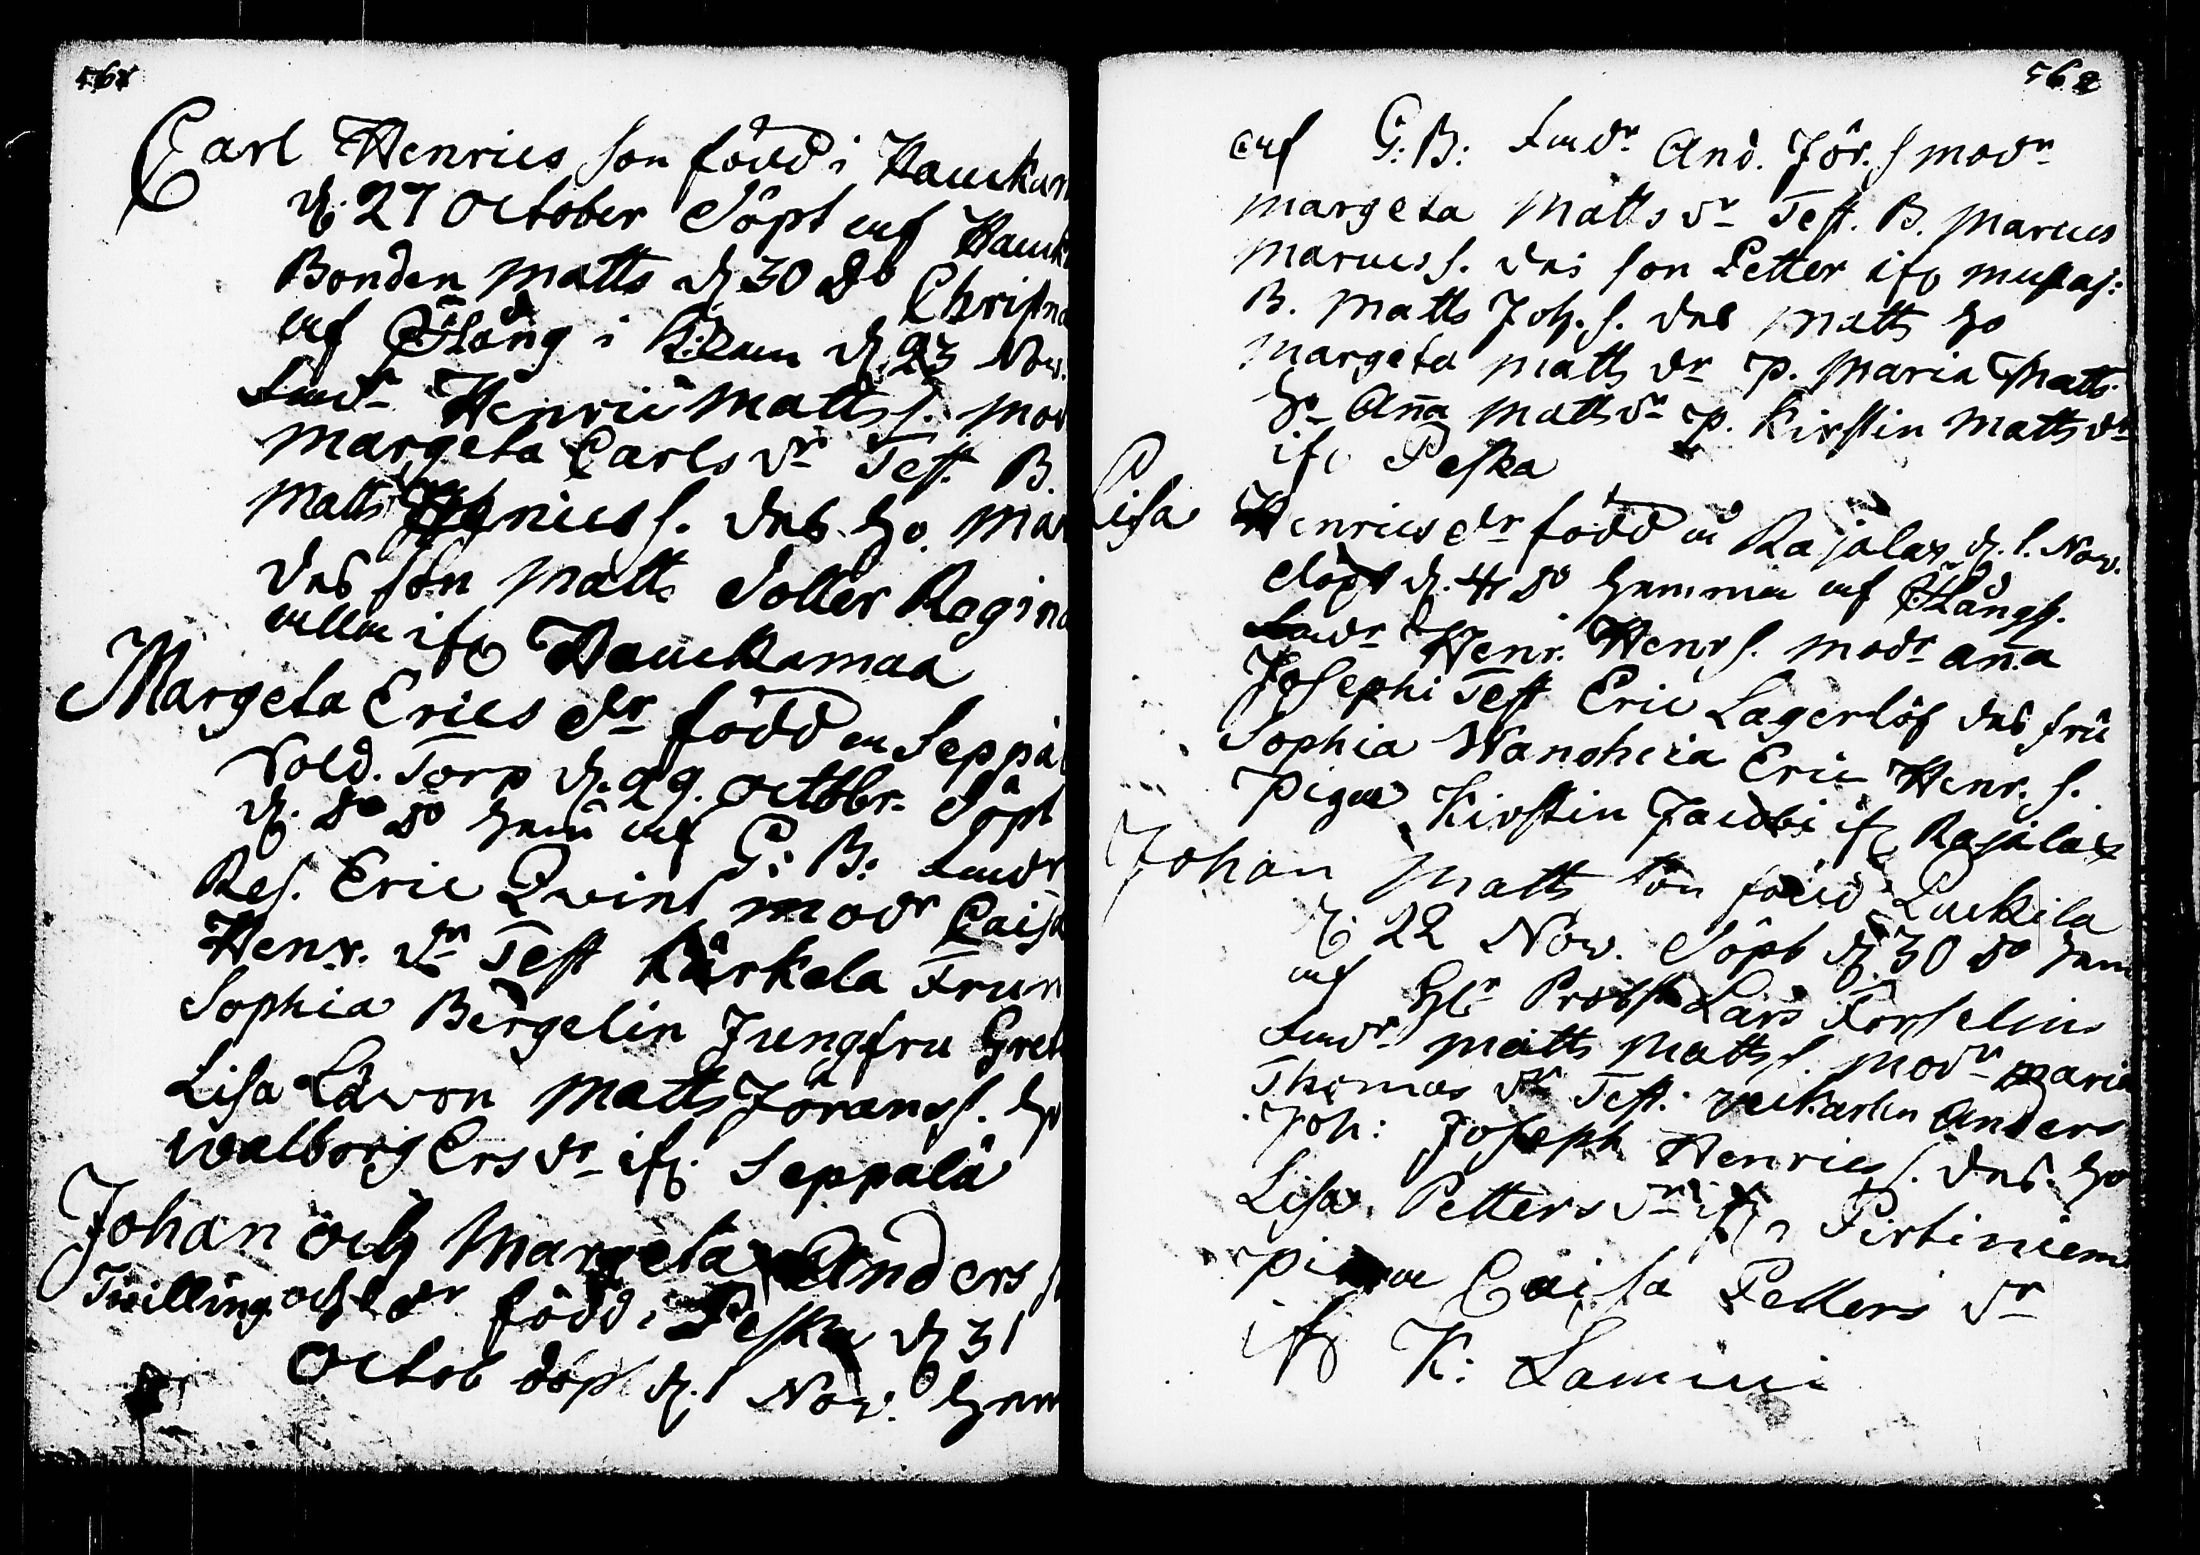 561
Carl Henrics son född i Hauckam
d. 27 October döpt af Hauck
Bonden Matts d 30 do Christna
af Ståhlg i Kiim d. 23 Nov.
Fadr Henric Matts s. mod
Margeta Carls dr Test. B.
Matts Henrics s. des ho. Mar
des son Matts dotter Regina
alla ifr Hauckamaa
Margeta Erics dr född a Seppäl
Sold. Torp d. 29. octobr. döpt
d. do do hema af G: B: Fadr
Res. Eric Qvint modr Caisa
Henr. dr Test Kärkela Frun
Sophia Bergelin Jungfru Gret
Lisa Lavon Matts Jörans s. ho
Walborg Ers dr ifr. Seppälä
Johan och Margeta Anders s
Twilling och dr född i Peska d 31
Octob döpt d. 1 Nov. hem
562
af G: B: Fadr And. Jör. s modr
Margeta Matts dr Test. B. Marcus
Marcus s. des son Petter ifr Mustaj:
B. Matts Joh. s. des Matts ho
Margeta Matts dr p. Maria Matts
dr Anna Matts dr p. Kirstin Matts dr
ifr Peska
Lisa Henrics dr född a Rajalax d. 1. Nov.
döpt d. 4 do hemma af
Fadr Henr. Henr s. modr anna
Josephi Test Eric Lagerlöf des fru
Sophia Wanoheia Eric Henr. s.
Pigan Kirstin Jacobi ifr Rajalax
Johan Matts son född Luckila
d. 22 Nov. döpt d. 30 do hem
af Hr Probst Lars Forselius
Fadr Matts Matts s. Modr Maria
Thomas dr Test. Anders
Joh: Joseph Henrics s. des ho
Lisa Petters dr ifr Pirtiniem
pigan Caisa Petters dr
ifr K: Lamini